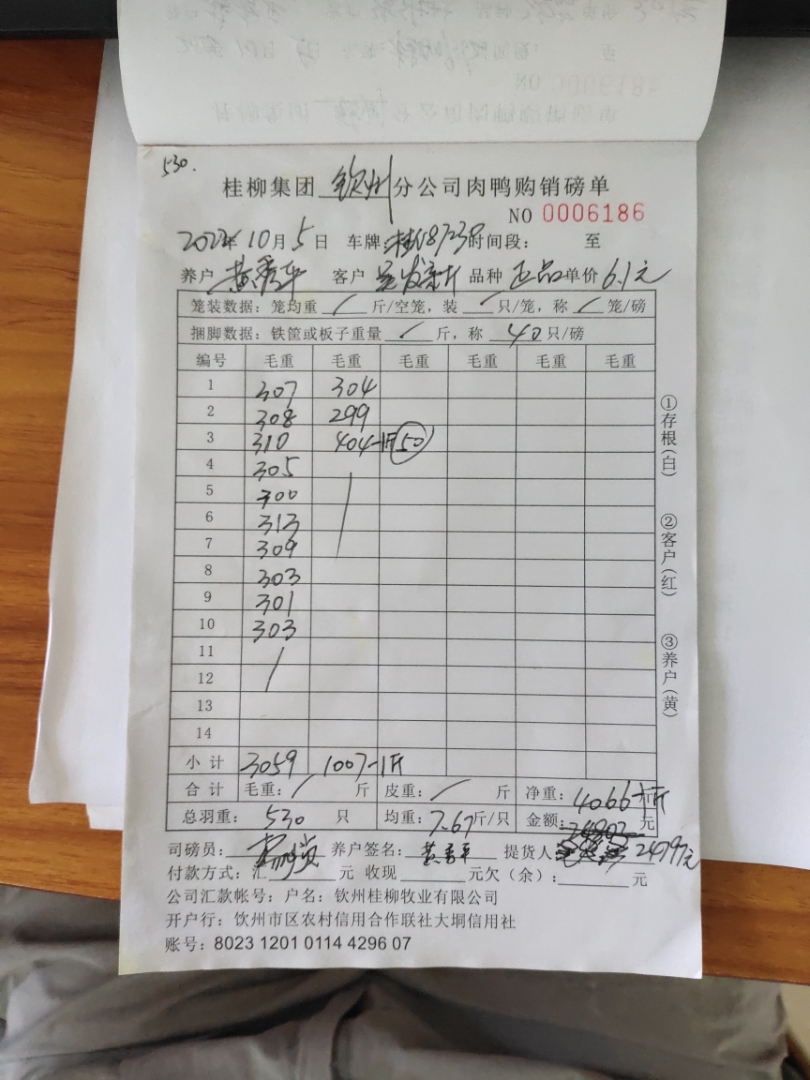 530.
桂柳集团 钦州 分公司肉鸭购销磅单
NO 0006186
2022年10月5日 车牌: 时间段: 至
养户 黄秀平 客户 品种 正品 单价 6.1元
笼装数据:笼均重 / 斤/空笼,装 / 只/笼,称 / 笼/磅
捆脚数据:铁筐或板子重量 / 斤,称 40 只/磅
编号 毛重 毛重 毛重 毛重 毛重 毛重
1 307 304
2 308 299
3 310 404-1斤 50
4 305
5 300
6 313
7 309
8 303
9 301
10 303
11
12
13
14
小计 3059 1007-1斤
合计 毛重: / 斤 皮重: / 斤 净重: 4066 斤
总羽重: 530 只 均重: 7.67斤/只 金额: 元
司磅员: 养户签名: 黄秀平 提货人 24797元
付款方式:汇 元 收现 元欠(余): 元
公司汇款帐号:户名:钦州桂柳牧业有限公司
开户行:饮州市区农村信用合作联社大垌信用社
账号:8023 1201 0114 4296 07
①存根(白)
②客户(红)
③养户(黄)